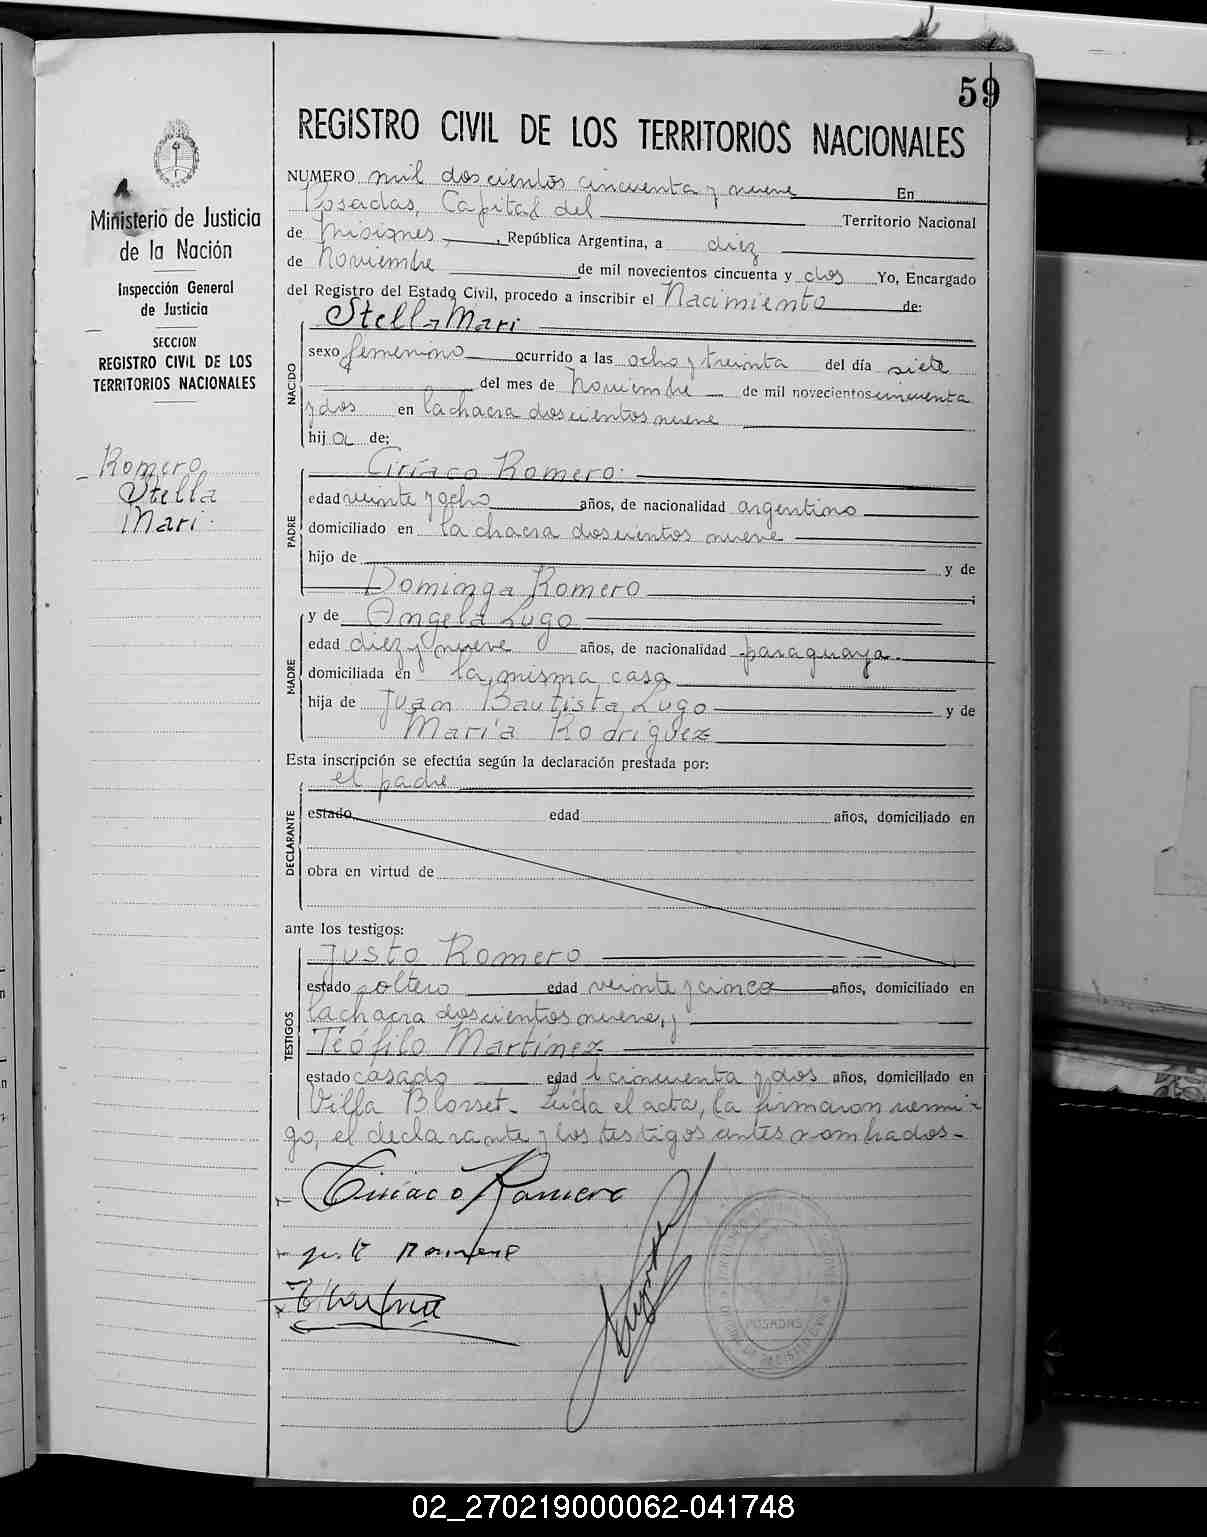 59
REGISTRO CIVIL DE LOS TERRITORIOS NACIONALES
Ministerio de Justicia
de la Nación
Inspección General
de Justicia
SECCION
REGISTRO CIVIL DE LOS
TERRITORIOS NACIONALES
Romero
Stella
Mari.
NUMERO mil doscientos cincuenta y nueve En
Posadas, Capital del Territorio Nacional
de Misiones, República Argentina, a diez
de Noviembre de mil novecientos cincuenta y dos Yo, Encargado
del Registro del Estado Civil, procedo a inscribir el Nacimiento de:
Stella Mari
NACIDO
sexo femenino ocurrido a las ocho y treinta del día siete
del mes de Noviembre de mil novecientos cincuenta
y dos en la chacra doscientos nueve
hija de:
PADRE
Ciríaco Romero.
edad veinte y ocho años, de nacionalidad argentino
domiciliado en la chacra doscientos nueve
hijo de y de
Dominga Romero ;
MADRE
y de Angela Lugo
edad diez y nueve años, de nacionalidad paraguaya
domiciliada en la misma casa
hija de Juan Bautista Lugo y de
María Rodríguez
Esta inscripción se efectúa según la declaración prestada por:
DECLARANTE
el padre
estado edad años, domiciliado en
obra en virtud de
ante los testigos:
TESTIGOS
Justo Romero
estado soltero edad veinte y cinco años, domiciliado en
la chacra doscientos nueve, y
Teófilo Martínez
estado casado edad cincuenta y dos años, domiciliado en
Villa Blosset. Leída el acta, la firmaron conmi-
go, el declarante y los testigos antes nombrados-
Ciriaco Romero
POSADAS
02_270219000062-041748